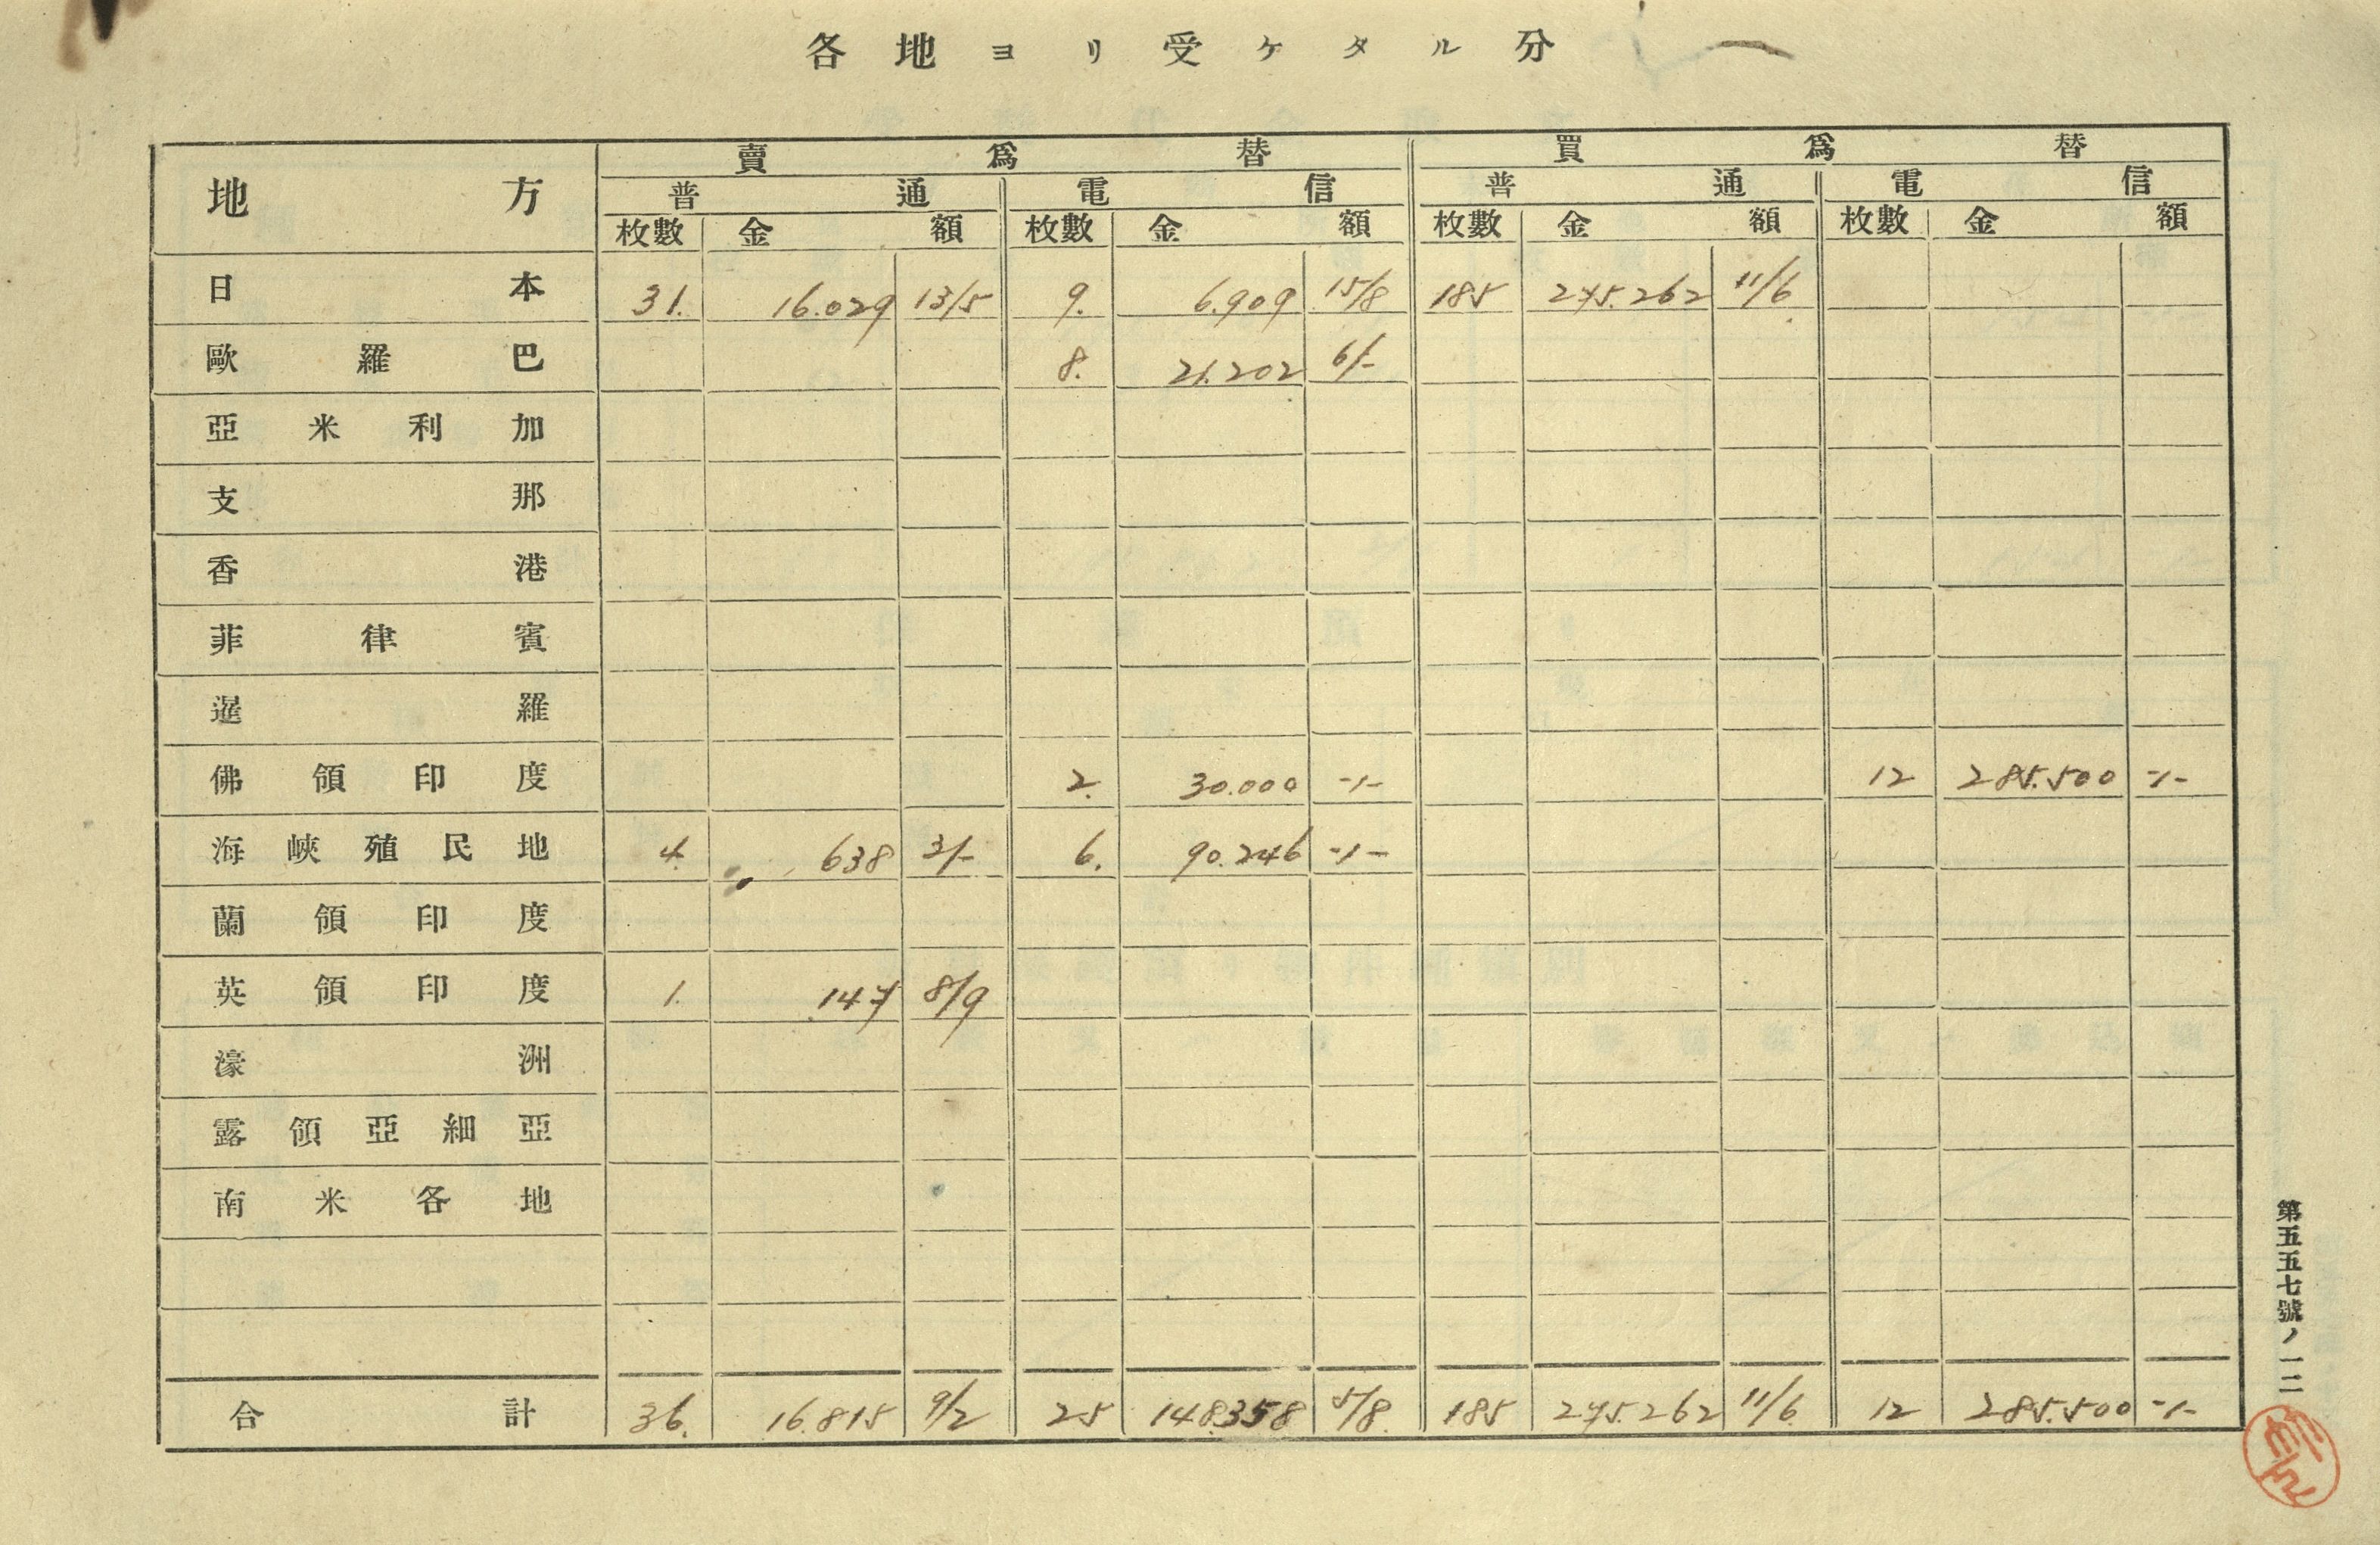 各地ヨリ受ケタル分
地方 賣爲替 買爲替
普通 電信 普通 電信
枚數 金額 枚數 金額 枚數 金額 枚數 金額
日本 31. 16.029 13/5 9. 6.909 15/8 185 275.262 11/6
歐羅巴 8. 21.202 6/-
亞米利加
支那
香港
菲律賓
暹羅
佛領印度 2. 30.000 -/- 12 285.500 -/-
海峽殖民地 4. 638 3/- 6. 90.246 -/-
蘭領印度
英領印度 1. 147 8/9
濠洲
露領亞細亞
南米各地
合計 36. 16.815 9/2 25 148.358 5/8 185 275.262 11/6 12 285.500 -/-
第五五七號ノ一二